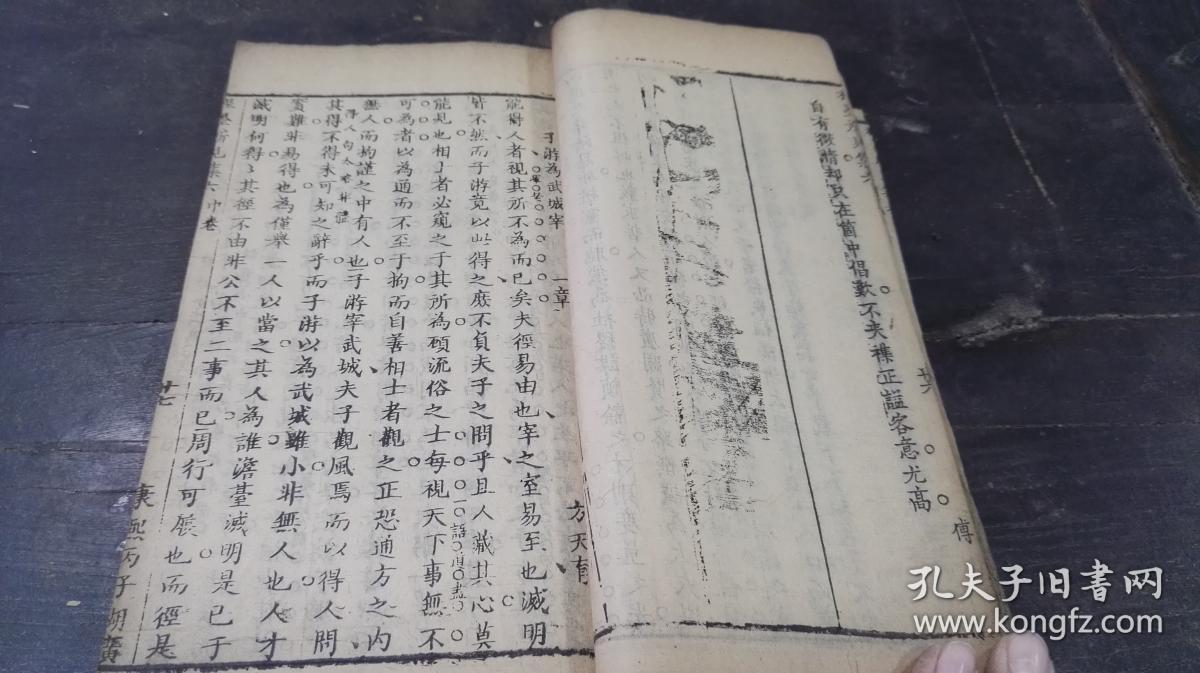 自有微情却只在箇中倡歎不夹襍正謚客意尤高
傅
子游為武城宰
一章
方天有
能得人者視其所不為而已矣夫徑易由也宰之室易至也滅明
皆不然而子游竟以此得之庶不負夫子之問乎且人藏其心莫
能見也相士者必窺之于其所為碩流俗之士每視天下事無不
語道盡
可為者以為通而不至于拘而自善相士者觀之正恐通方之内
無人而拘謹之中有人也子游宰武城夫子觀風焉而以得人問
其得不得未可知之辭乎而子游以為武城雖小非無人也人才
實難非易得也為僅舉一人以當之其人為誰澹臺滅明是已于
滅明何得得其徑不由非公不至二事而已周行可履也而徑是
六中卷
廿七
康熙丙子湖廣
孔夫子旧书网
www.kongfz.com